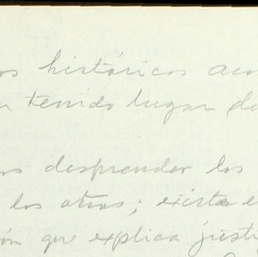 os históricos acon
tenido lugar de
os desprender los
los otros; existe e
ón que explica justi